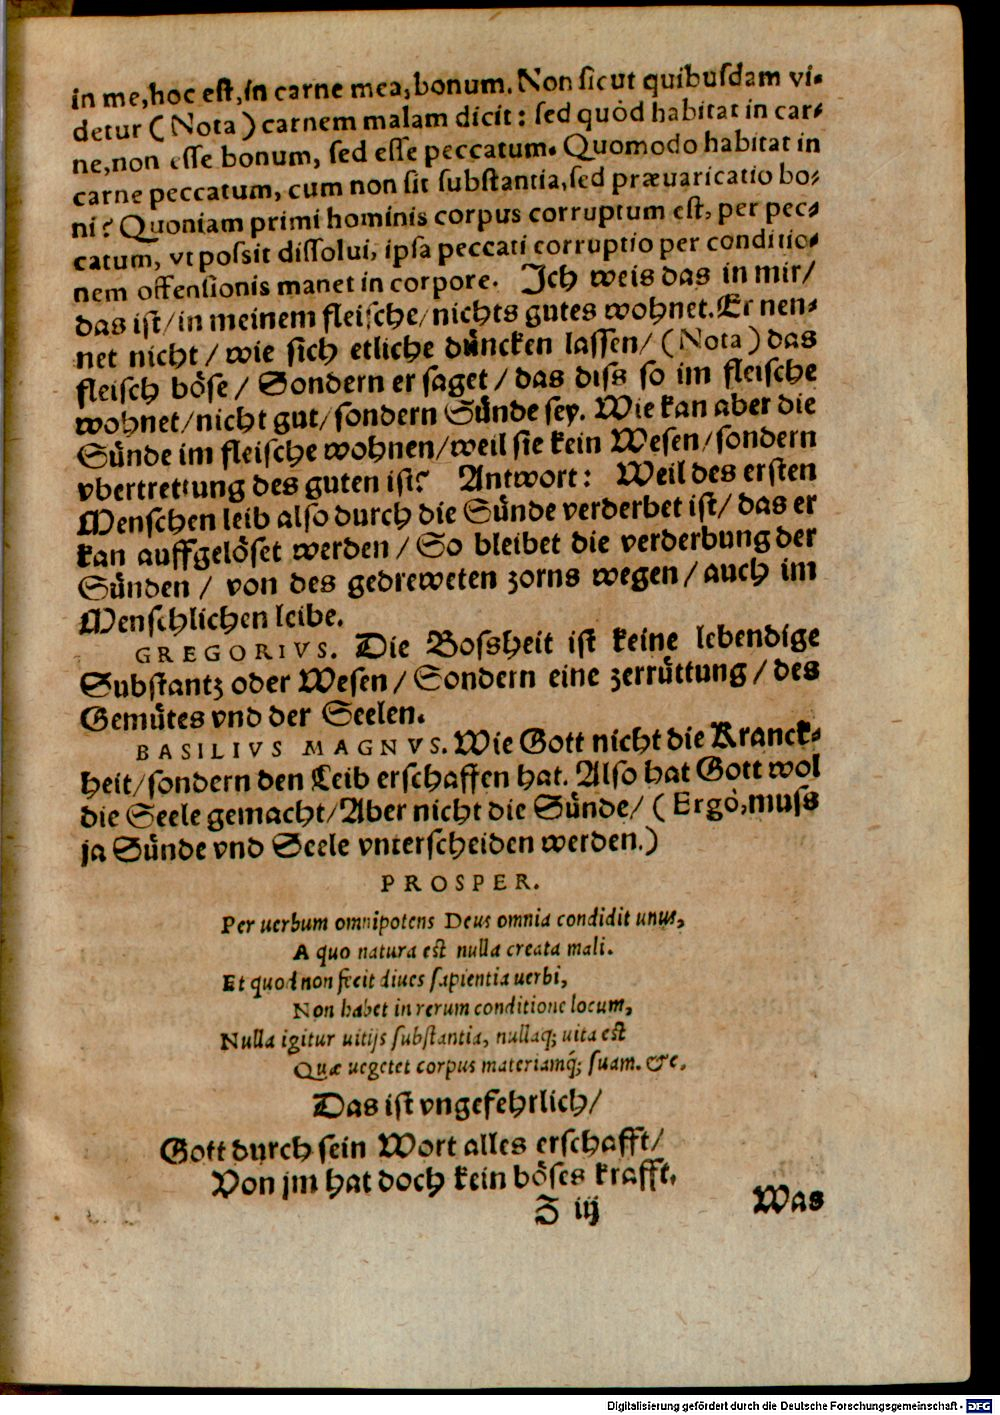 in me,hoc eſt,in carne mea,bonum. Non ſicut quibuſdam vi-
detur (Nota) carnem malam dicit: ſed quòd habitat in car-
ne,non eſſe bonum, ſed eſſe peccatum. Quomodo habitat in
carne peccatum, cum non ſit ſubſtantia,ſed præuaricatio bo-
ni? Quoniam primi hominis corpus corruptum eſt, per pec-
catum, vt poſsit diſſolui, ipſa peccati corruptio per conditio-
nem offenſionis manet in corpore. Ich weis das in mir/
das iſt/in meinem fleiſche/nichts gutes wohnet. Er nen-
net nicht/wie ſich etliche düncken laſſen/(Nota) das
fleiſch böſe/ Sondern er ſaget/das diſs ſo im fleiſche
wohnet/nicht gut/ſondern Sünde ſey. Wie kan aber die
Sünde im fleiſche wohnen/weil ſie kein Weſen/ſondern
vbertrettung des guten iſt? Antwort: Weil des erſten
Menſchen leib alſo durch die Sünde verderbet iſt/ das er
kan auffgelöſet werden/So bleibet die verderbung der
Sünden/ von des gedreweten zorns wegen/auch im
Menſchlichen leibe.
GREGORIVS. Die Boſsheit iſt keine lebendige
Subſtantz oder Weſen/Sondern eine zerrüttung/des
Gemütes vnd der Seelen.
BASILIVS MAGNVS. Wie Gott nicht die Kranck-
heit/ſondern den Leib erſchaffen hat. Alſo hat Gott wol
die Seele gemacht/Aber nicht die Sünde/ (Ergò,muſs
ja Sünde vnd Seele vnterſcheiden werden.)
PROSPER.
Per uerbum omnipotens Deus omnia condidit unus,
A quo natura eſt nulla creata mali.
Et quod non fecit diues ſapientia uerbi,
Non habet in rerum conditione locum,
Nulla igitur uitijs ſubſtantia, nullaq; uita eſt
Quæ uegetet corpus materiamq́; ſuam. &c.
Das iſt vngefehrlich/
Gott durch ſein Wort alles erſchafft/
Von jm hat doch kein böſes krafft.
Z iij Was
Digitalisierung gefördert durch die Deutsche Forschungsgemeinschaft - DFG